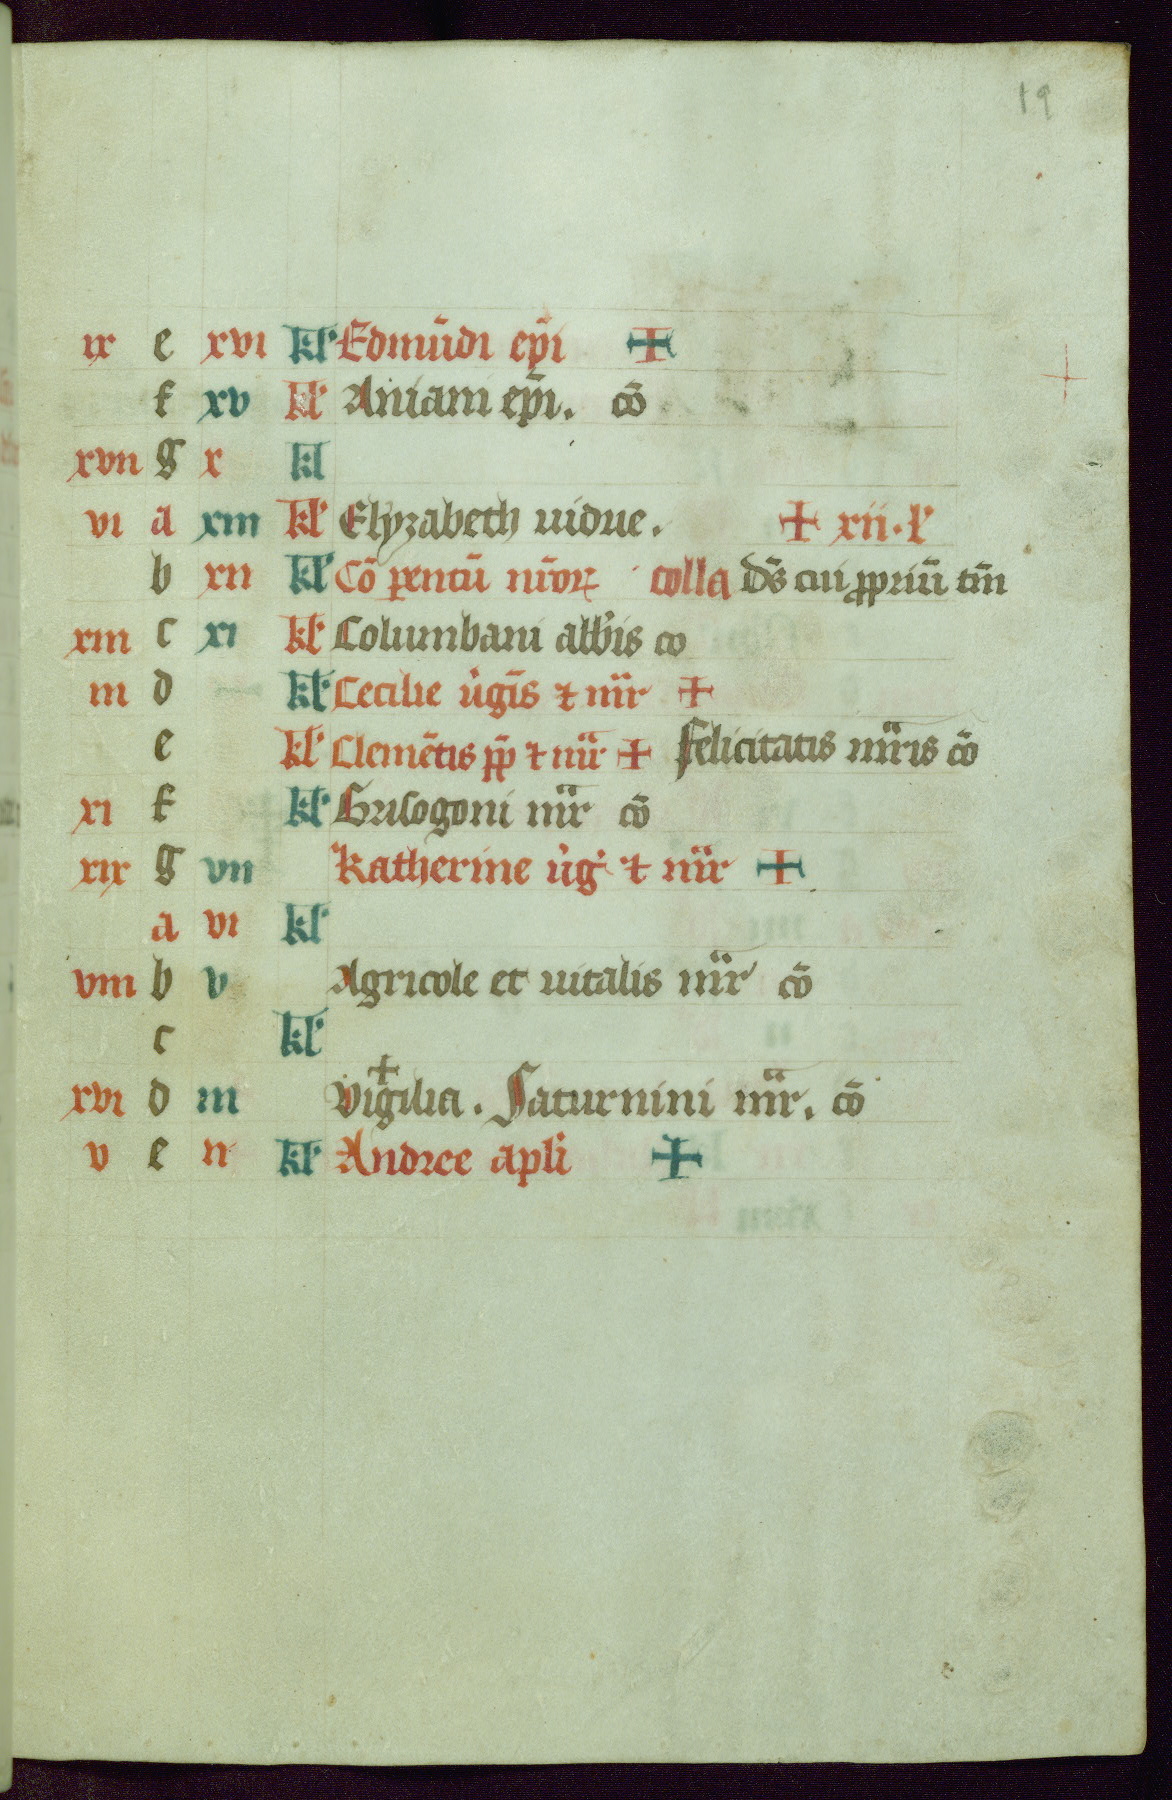 19
ix e xvi kl' Edmūdi ep̄i +
f xv kl' Aniani ep̄i. cō
xvii g x kl
vi a xiii kl' Elyzabeth uidue. + xii. l'
b xii kl' Cō p̲entū nr̄oꝝ colla d̄s cui ꝓpriū tm̄
xiii c xi kl' Columbani abb̄is co
iii d kl' Cecilie u͛gīs ⁊ mr̄ +
e kl' Clemētis pp̄ ⁊ mr̄ + Felicitatis mr̄is cō
xi f kl' Grisogoni mr̄ cō
xix g vii Katherine u͛g' ⁊ mr̄ +
a vi kl'
viii b v Agricole et uitalis mr̄ cō
c kl'
xvi d iii Vigilia. + Saturnini mr̄. cō
v e ii kl' Andree apl'i +